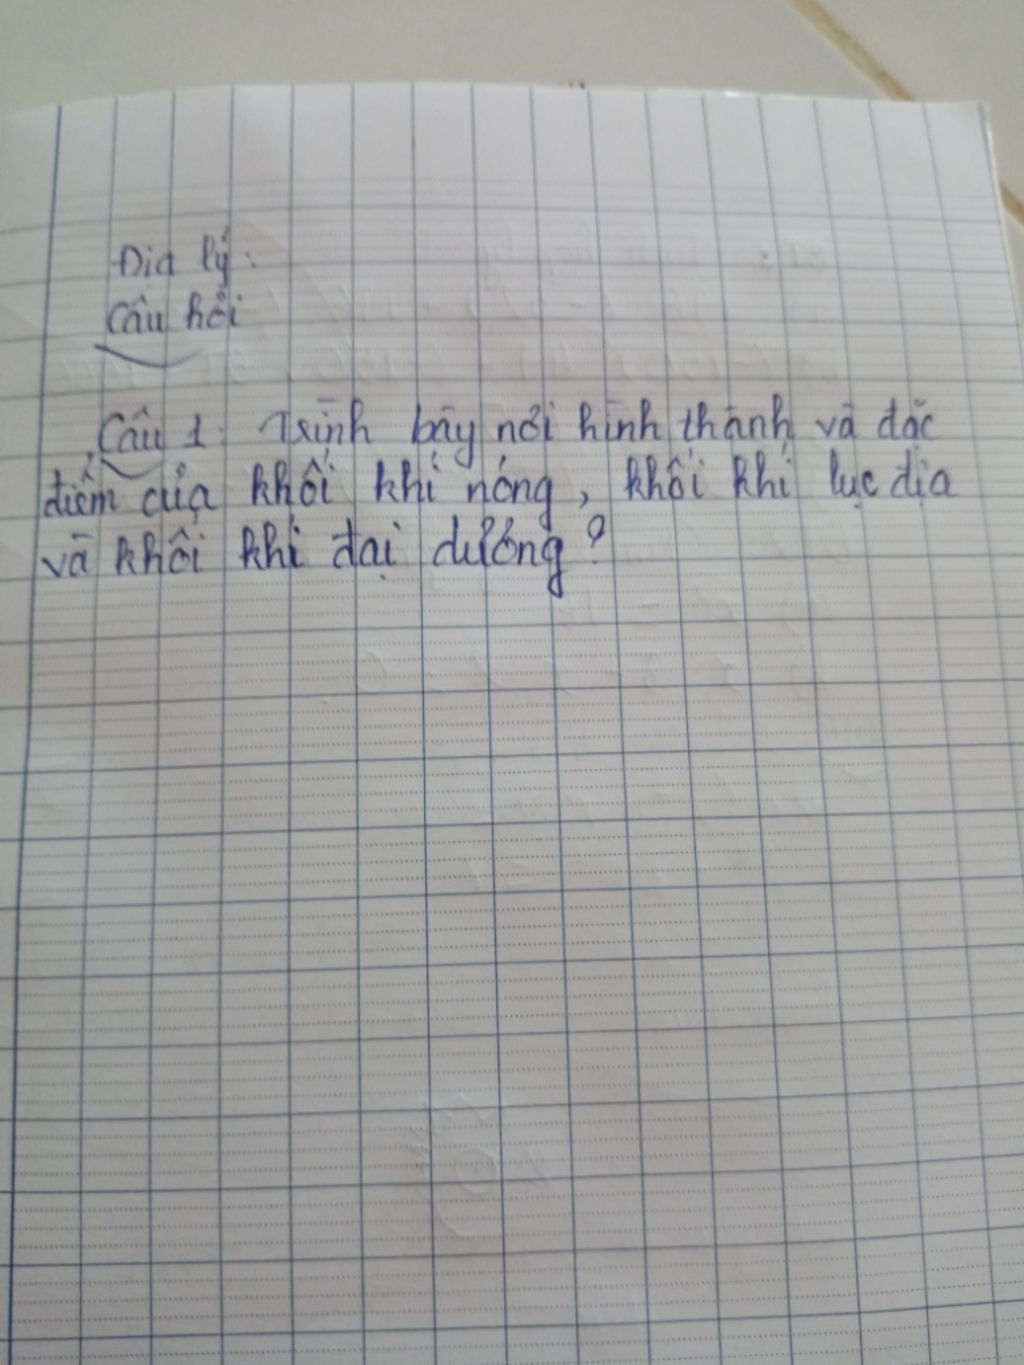 Địa lý:
Câu hỏi
Câu 1: Trình bày nơi hình thành và đặc
điểm của khối khí nóng, khối khí lục địa
và khối khí đại dương?